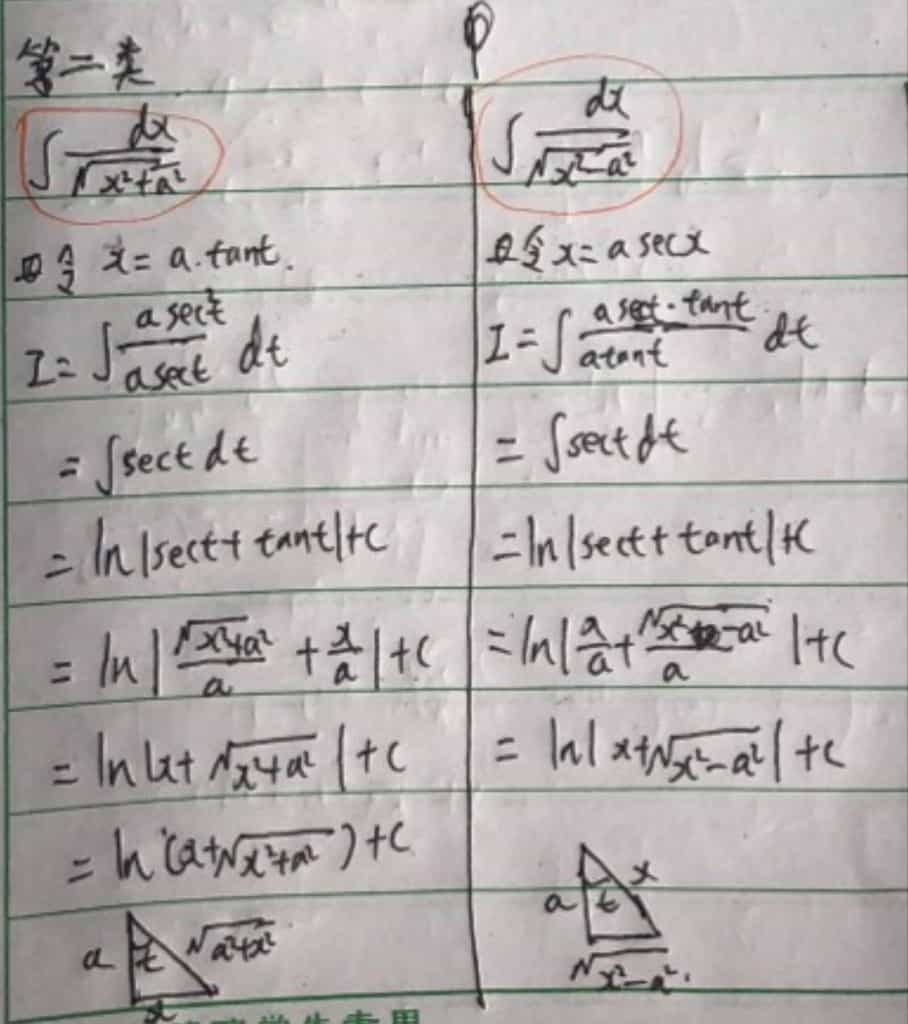 第二类
∫ dx / √(x²+a²)
令 x = a·tant.
I = ∫ a sec²t / a sect dt
= ∫ sect dt
= ln|sect + tant| + C
= ln|√(x²+a²)/a + x/a| + C
= ln|x + √(x²+a²)| + C
= ln(x + √(x²+a²)) + C
a t √(a²+x²)
x
∫ dx / √(x²-a²)
令 x = a secx
I = ∫ a sect·tant / a tant dt
= ∫ sect dt
= ln|sect + tant| + C
= ln|x/a + √(x²-a²)/a| + C
= ln|x + √(x²-a²)| + C
a t x
√(x²-a²)